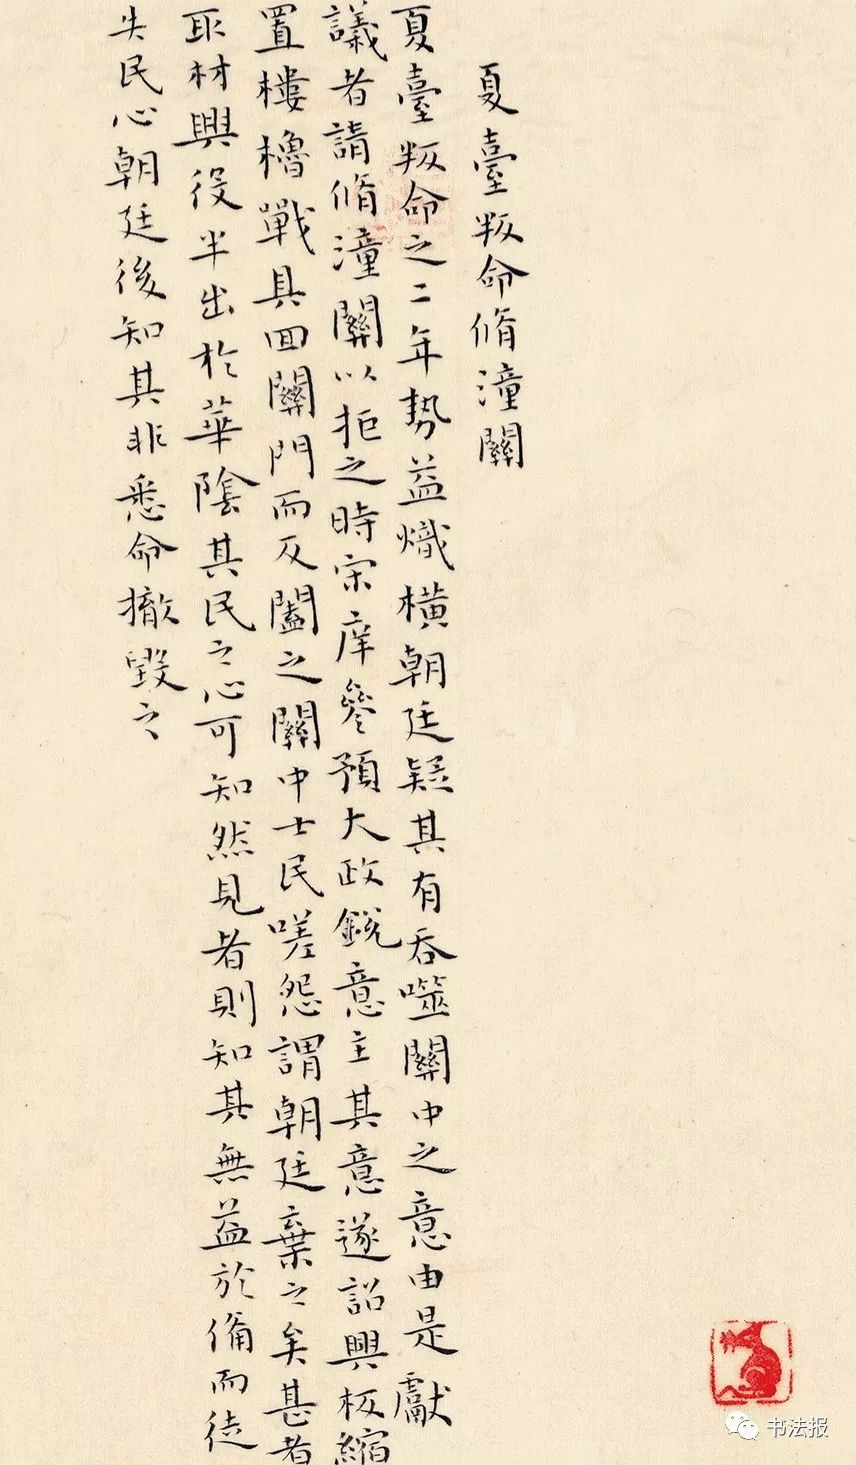 夏臺叛命脩潼關
夏臺叛命之二年勢益熾橫朝廷疑其有吞噬關中之意由是獻
議者請脩潼關以拒之時宋庠參預大政銳意主其意遂詔興板縮
置樓櫓戰具回關門而反闔之關中士民嗟怨謂朝廷棄之矣甚者
取材興役半出於華陰其民之心可知然見者則知其無益於備而徒
失民心朝廷後知其非悉命撤毀之
书法报